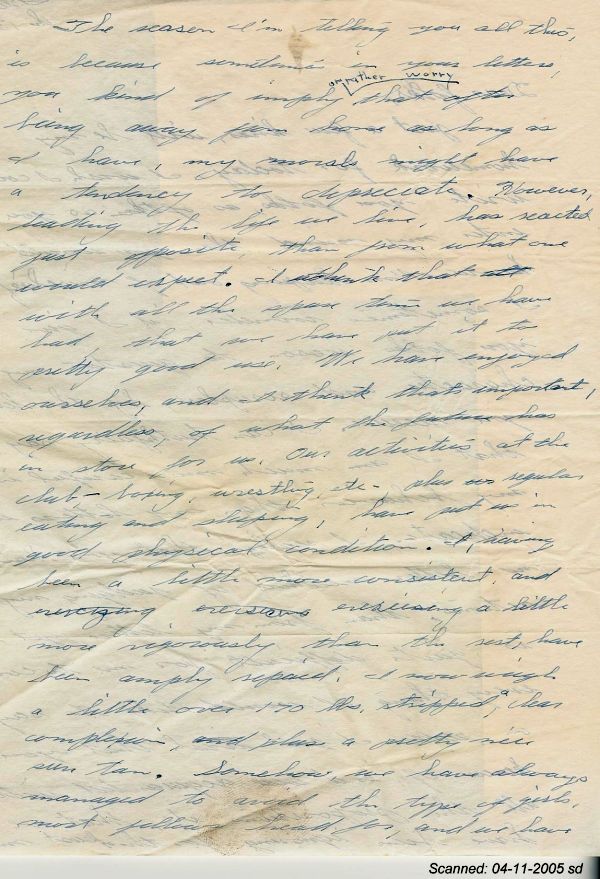 The reason I'm telling you all this,
is because sometimes in your letters,
or rather worry
you kind of imply that after
being away from home as long as
I have, my morals might have
a tendency to depreciate. However,
leading the life we live, has reacted
just opposite, than from what one
would expect. I think that
with all the spare time we have
had, that we have put it to
pretty good use. We have enjoyed
ourselves, and I think thats important,
regardless, of what the future has
in store for us. Our activities at the
club,- boxing, wrestling, etc- plus regular
eating and sleeping, have put us in
good physical condition. I, having
been a little more consistent, and
exercizing exersising a little
more vigorously than the rest, have
been amply repaid. I now weigh
a little over 170 lbs. stripped, a clear
complexion, and plus a pretty nice
sun tan. Somehow we have always
managed to avoid the type of girls,
most fellows head for, and we have
Scanned: 04-11-2005 sd